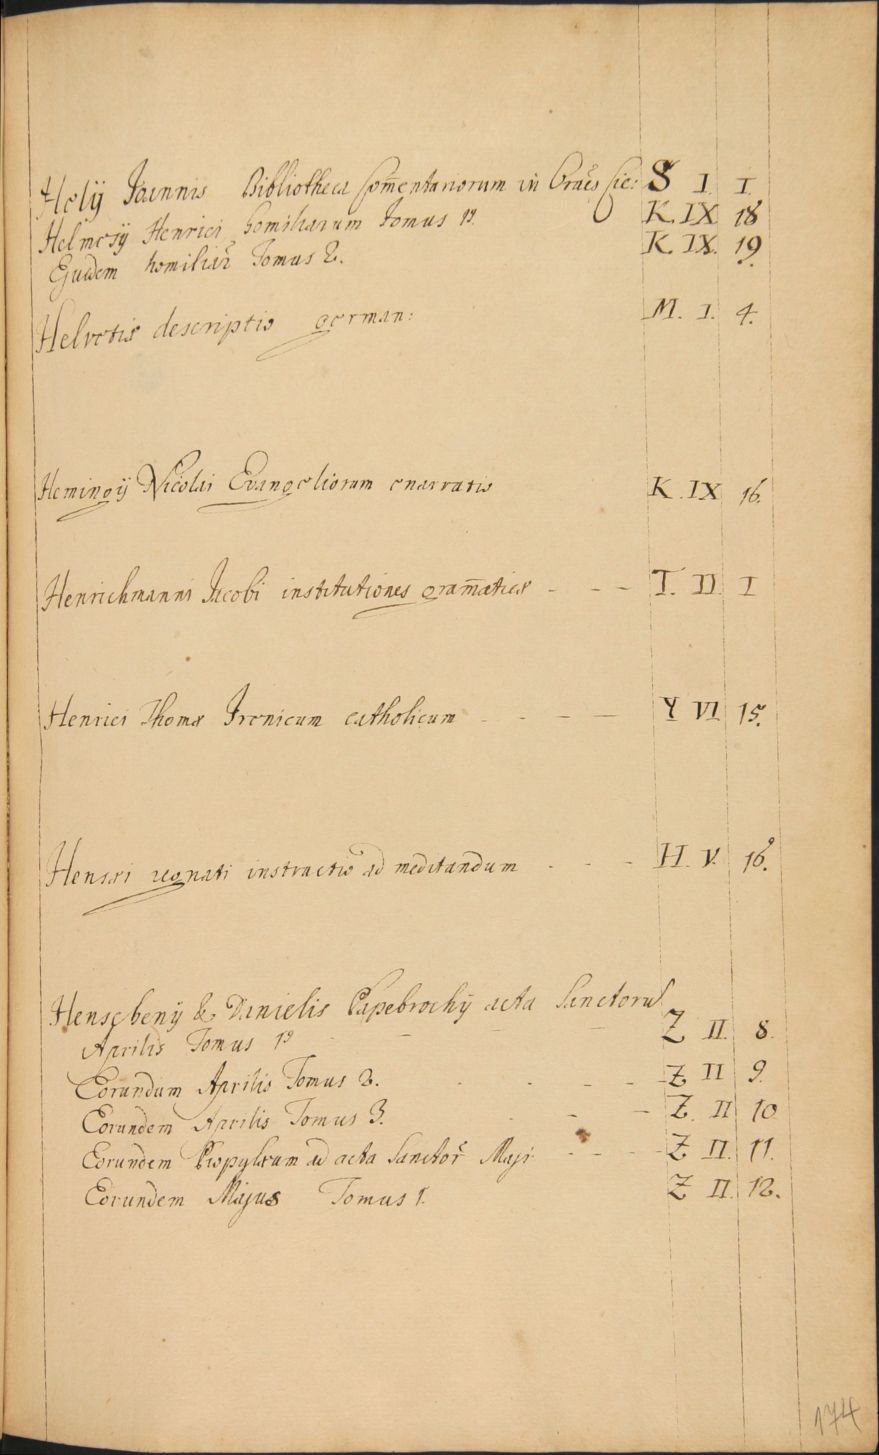 Helÿ Joannis Bibliotheca Com̃entariorum in Orães Cic: S I. I.
Helmesÿ Henrici homiliarum Tomus 1⁹. K. IX 18
Ejusdem homiliar̃ Tomus 2. K. IX. 19.
Helvetiæ descriptio german: M. I. 4.
Hemingÿ Nicolai Evangeliorum enarratio K. IX 16.
Henrichmanni Jacobi institutiones gram̃aticæ - - - T. II. I
Henrici Thomæ Irenicum catholicum - - - Y VI 15.
Hensæi instructio ad meditandum - - - H. V. 16.
Henschenÿ & Danielis Papebrochÿ acta Sanctorũ
Aprilis Tomus 1⁹ - - - Z II. 8.
Eorundum Aprilis Tomus 2. - - - Z II 9.
Eorundem Aprilis Tomus 3. - - - Z. II 10
Eorundem Propylæum ad acta Sanctor̃ Maji - - - Z II. 11.
Eorundem Majus Tomus 1. Z II. 12.
174